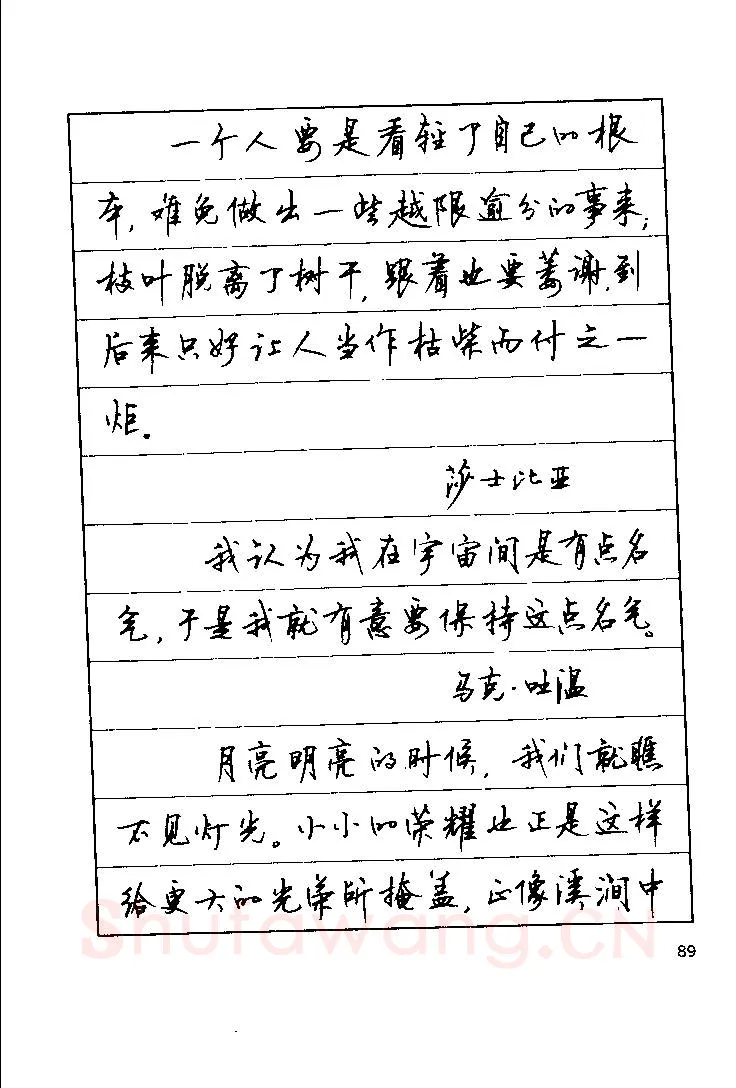 一个人要是看轻了自己的根
本,难免做出一些越限逾分的事来;
枝叶脱离了树干,跟着也要萎谢,到
后来只好让人当作枯柴而付之一
炬。
莎士比亚
我认为我在宇宙间是有点名
气,于是我就有意要保持这点名气。
马克·吐温
月亮明亮的时候,我们就瞧
不见灯光。小小的荣耀也正是这样
给更大的光荣所掩盖,正像溪涧中
Shufawang.CN
89